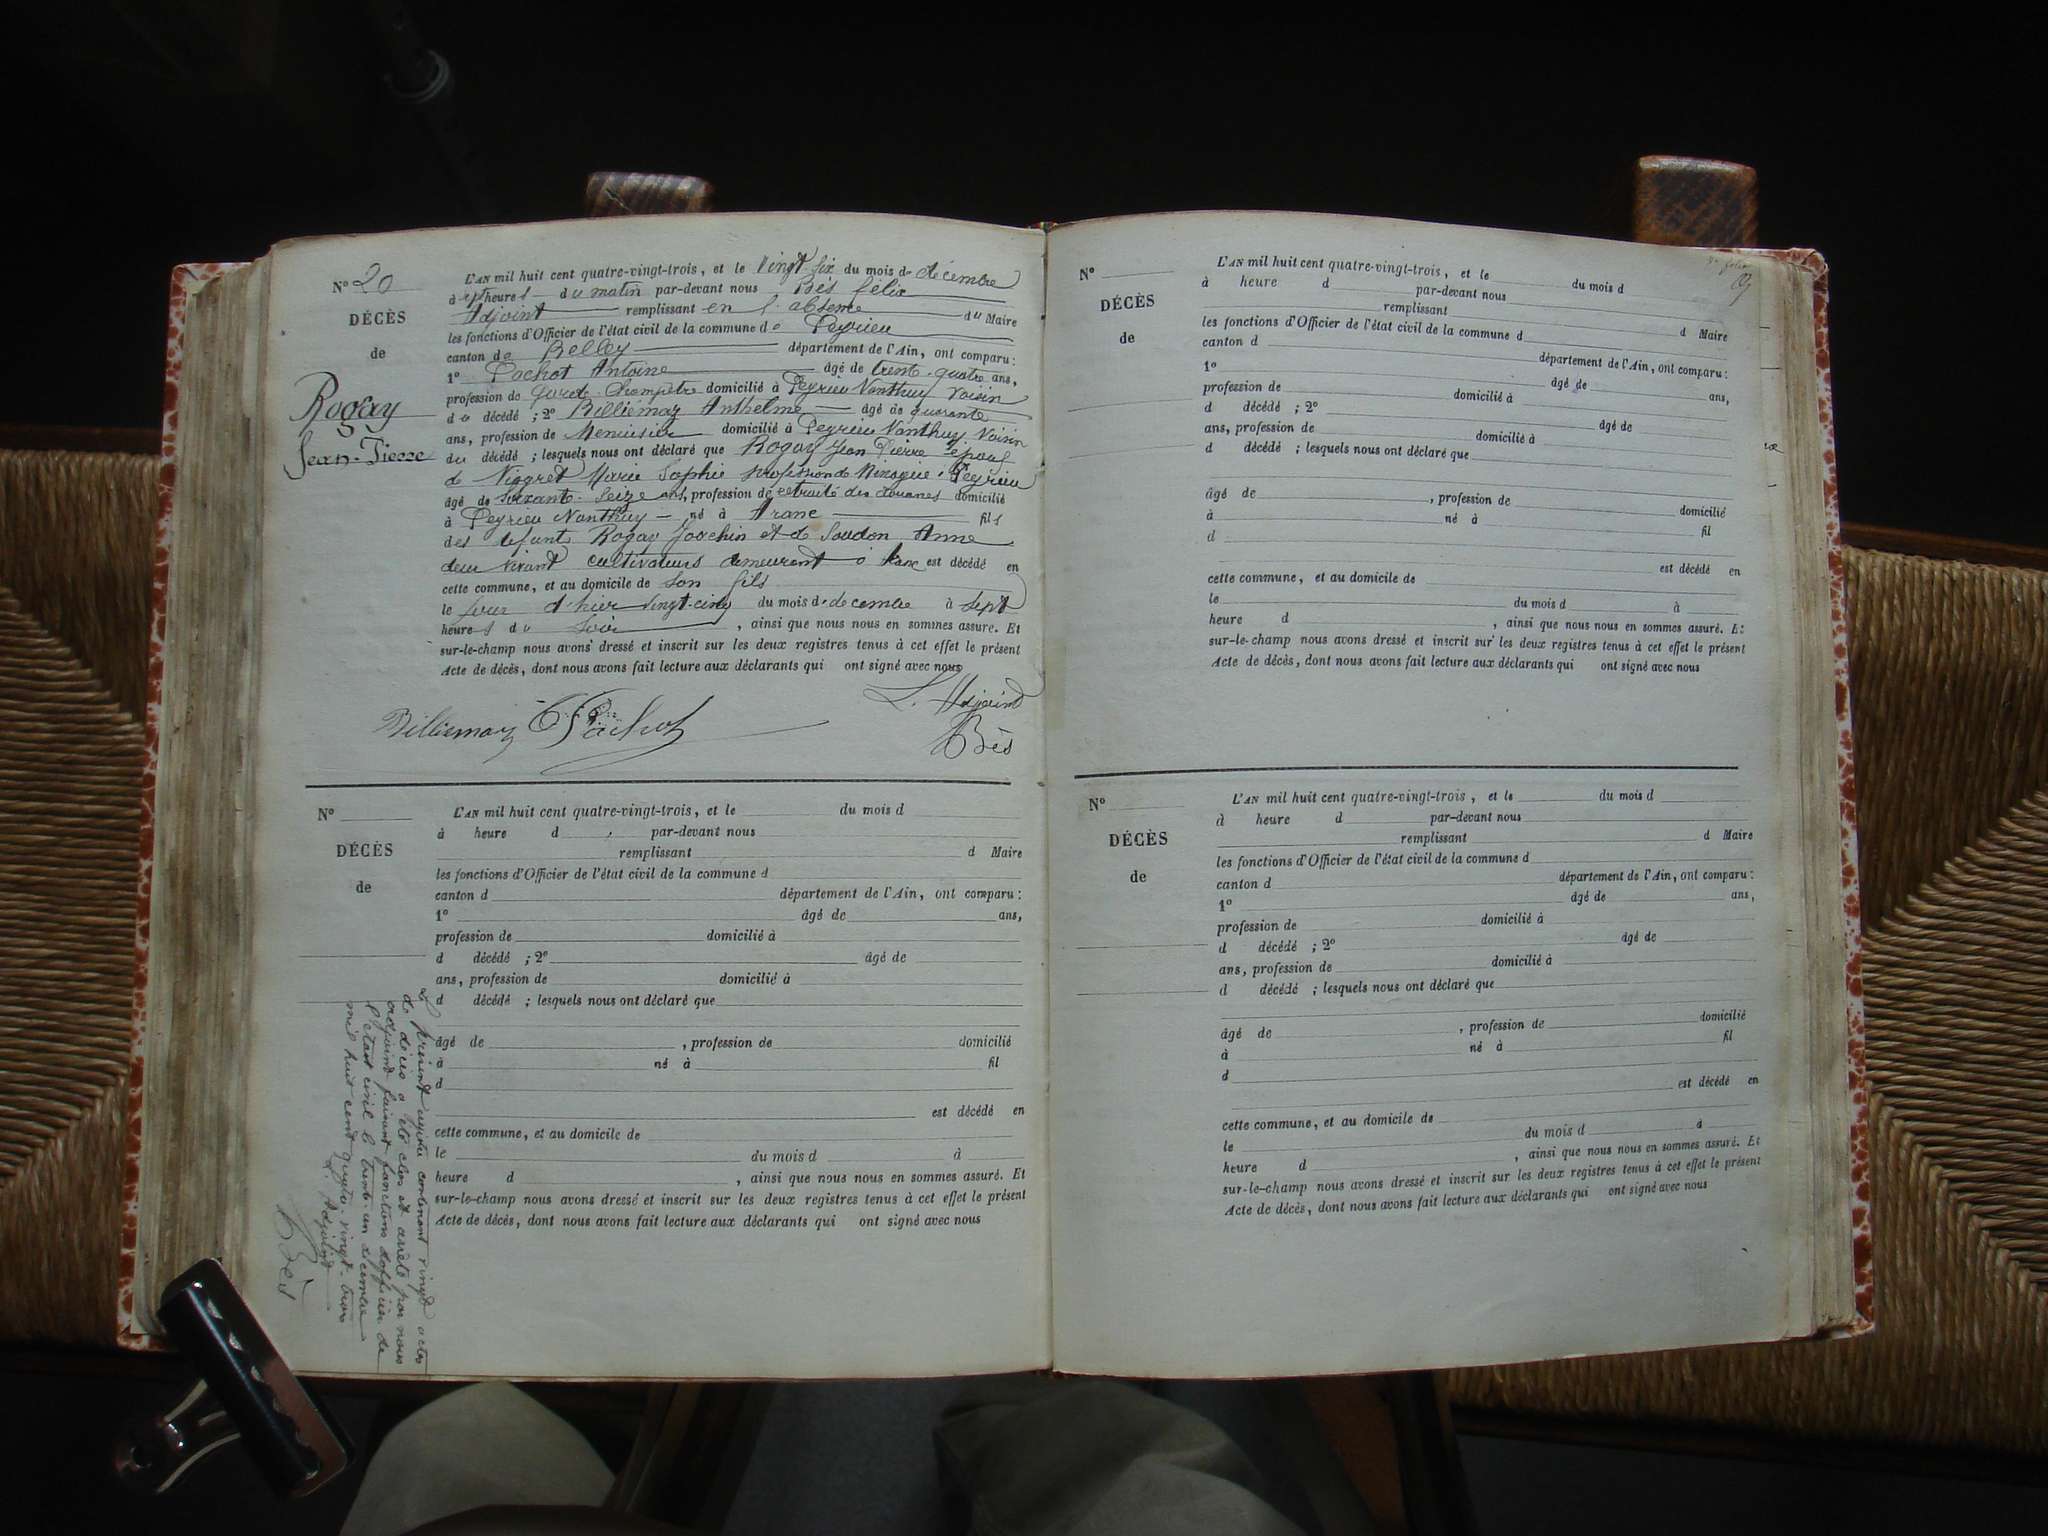 N° 20
DÉCÈS
de
Rogay
Jean-Pierre
L'AN mil huit cent quatre-vingt-trois, et le Vingt Six du mois de décembre
à sept heures du matin par-devant nous Bès félix
Adjoint remplissant en l'absence du Maire
les fonctions d'Officier de l'état civil de la commune de Peyrieu
canton de Belley département de l'Ain, ont comparu:
1° Pochot Antoine âgé de trente-quatre ans,
profession de Garde-Champêtre domicilié à Peyrieu Nanthuy Voisin
du décédé ; 2° Billiémaz Anthelme âgé de quarante
ans, profession de Menuisier domicilié à Peyrieu Nanthuy, Voisin
du décédé ; lesquels nous ont déclaré que Rogay Jean Pierre époux
de Marie Sophie profession de Peyrieu
âgé de soixante-seize ans, profession de retraité des douanes domicilié
à Peyrieu Nanthuy né à Aranc fils
des défunt Rogay Joachin et de Soudon Anne
deux vivant cultivateurs demeurant à Aranc est décédé en
cette commune, et au domicile de son fils
le jour d'hier vingt-cinq du mois de décembre à sept
heures du soir, ainsi que nous nous en sommes assuré. Et
sur-le-champ nous avons dressé et inscrit sur les deux registres tenus à cet effet le présent
Acte de décès, dont nous avons fait lecture aux déclarants qui ont signé avec nous
L. Adjoind
Billiemaz Pachot Bès
N°
DÉCÈS
de
L'AN mil huit cent quatre-vingt-trois, et le du mois d
à heure d par-devant nous
remplissant d Maire
les fonctions d'Officier de l'état civil de la commune d
canton d département de l'Ain, ont comparu:
1° âgé de ans,
profession de domicilié à
d décédé ; 2° âgé de
ans, profession de domicilié à
d décédé ; lesquels nous ont déclaré que
âgé de , profession de domicilié
à né à fil
d
est décédé en
cette commune, et au domicile de
le du mois d à
heure d , ainsi que nous nous en sommes assuré. Et
sur-le-champ nous avons dressé et inscrit sur les deux registres tenus à cet effet le présent
Acte de décès, dont nous avons fait lecture aux déclarants qui ont signé avec nous
Le présent registre contenant vingt actes
de décès a été clos et arrêté par nous
adjoind faisant fonctions d'officier de
l'état civil le trente-un décembre
mil huit cent quatre-vingt-trois
L. Adjoind
Bès
N°
DÉCÈS
de
L'AN mil huit cent quatre-vingt-trois, et le du mois d
à heure d par-devant nous
remplissant d Maire
les fonctions d'Officier de l'état civil de la commune d
canton d département de l'Ain, ont comparu:
1° âgé de ans,
profession de domicilié à
d décédé ; 2° âgé de
ans, profession de domicilié à
d décédé ; lesquels nous ont déclaré que
âgé de , profession de domicilié
à né à fil
d
est décédé en
cette commune, et au domicile de
le du mois d à
heure d , ainsi que nous nous en sommes assuré. Et
sur-le-champ nous avons dressé et inscrit sur les deux registres tenus à cet effet le présent
Acte de décès, dont nous avons fait lecture aux déclarants qui ont signé avec nous
N°
DÉCÈS
de
L'AN mil huit cent quatre-vingt-trois, et le du mois d
à heure d par-devant nous
remplissant d Maire
les fonctions d'Officier de l'état civil de la commune d
canton d département de l'Ain, ont comparu:
1° âgé de ans,
profession de domicilié à
d décédé ; 2° âgé de
ans, profession de domicilié à
d décédé ; lesquels nous ont déclaré que
âgé de , profession de domicilié
à né à fil
d
est décédé en
cette commune, et au domicile de
le du mois d à
heure d , ainsi que nous nous en sommes assuré. Et
sur-le-champ nous avons dressé et inscrit sur les deux registres tenus à cet effet le présent
Acte de décès, dont nous avons fait lecture aux déclarants qui ont signé avec nous